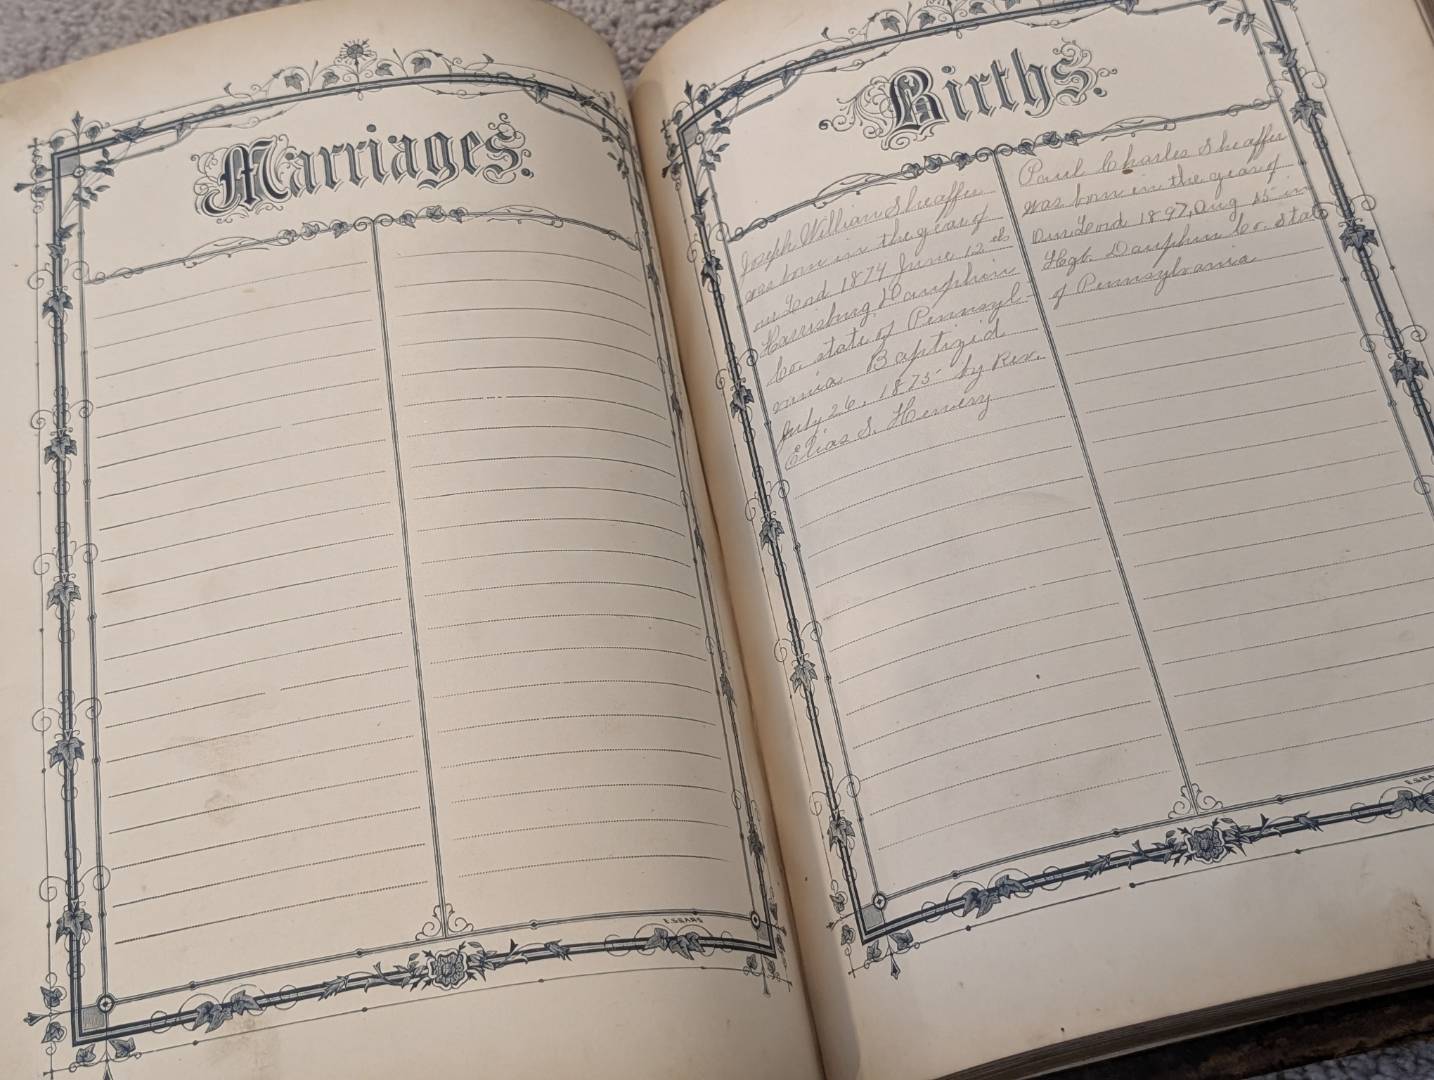 Marriages.
E.SEARS
Births.
Joseph William Sheaffer
was born in the year of
our Lord 1874 June 12th
Harrisburg Dauphin
Co. state of Pennsyl-
vania Baptizid
July 26, 1875 by Rev.
Elias S. Henery
Paul Charles Sheaffer
was born in the year of
our Lord 1897, Aug in
Hgb. Dauphin Co. State
of Pennsylvania